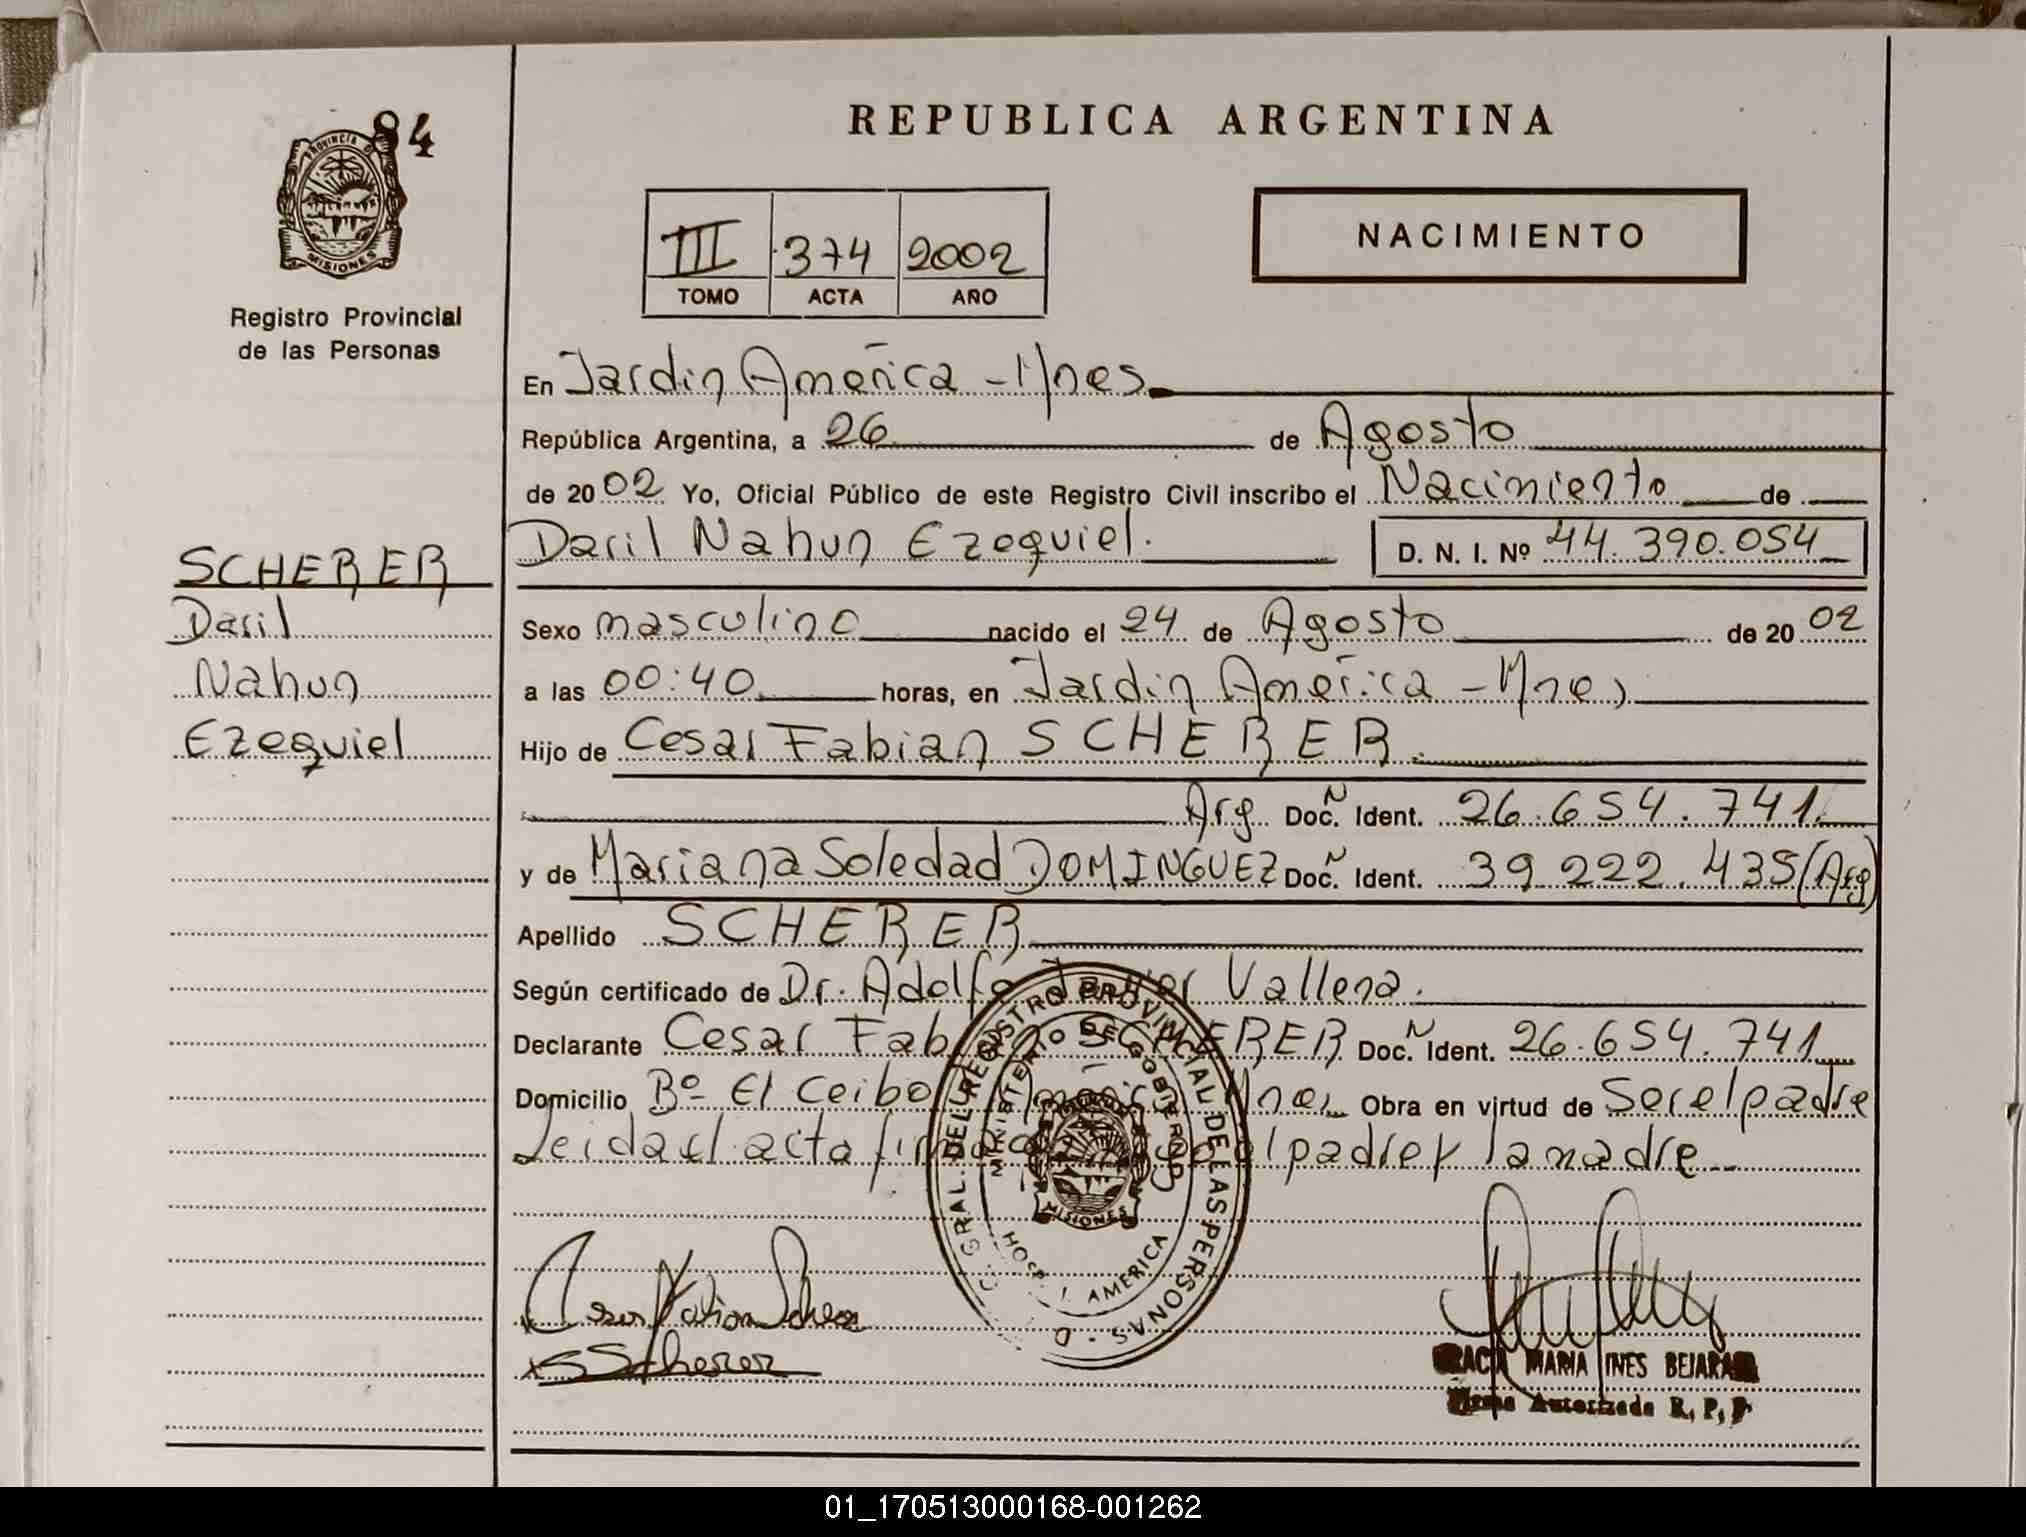 84
PROVINCIA D
MISIONES
Registro Provincial
de las Personas
REPUBLICA ARGENTINA
III 374 2002
TOMO ACTA AÑO
NACIMIENTO
En Jardin América - Mnes.
República Argentina, a 26 de Agosto
de 2002 Yo, Oficial Público de este Registro Civil inscribo el Nacimiento de
Daril Nahun Ezequiel. D. N. I. Nº 44.390.054
SCHERER
Daril
Nahun
Ezequiel
Sexo masculino nacido el 24 de Agosto de 2002
a las 00:40 horas, en Jardin América - Mnes
Hijo de Cesar Fabian SCHERER.
Arg. Doc. N Ident. 26.654.741.
y de Mariana Soledad DOMINGUEZ Doc. N Ident. 39 222.435 (Arg)
Apellido SCHERER
Según certificado de Dr. Adolfo Vallena.
Declarante Cesar Fabian SCHERER Doc. N Ident. 26.654.741
Domicilio Bº El Ceibo América Mnes Obra en virtud de Ser el padre
Leida el acta el padre y la madre
D. GRAL. DEL REGISTRO PROVINCIAL DE LAS PERSONAS
MINISTERIO DE GOBIERNO
MISIONES
HOSP. J. AMERICA
Cesar Fabian Scherer
Scherer
MARIA INES BEJARANO
Firma Autorizada R. P. P
01_170513000168-001262